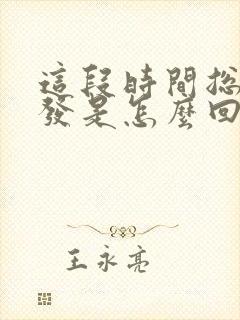 這段時間掉
發是怎麼回
王永亮